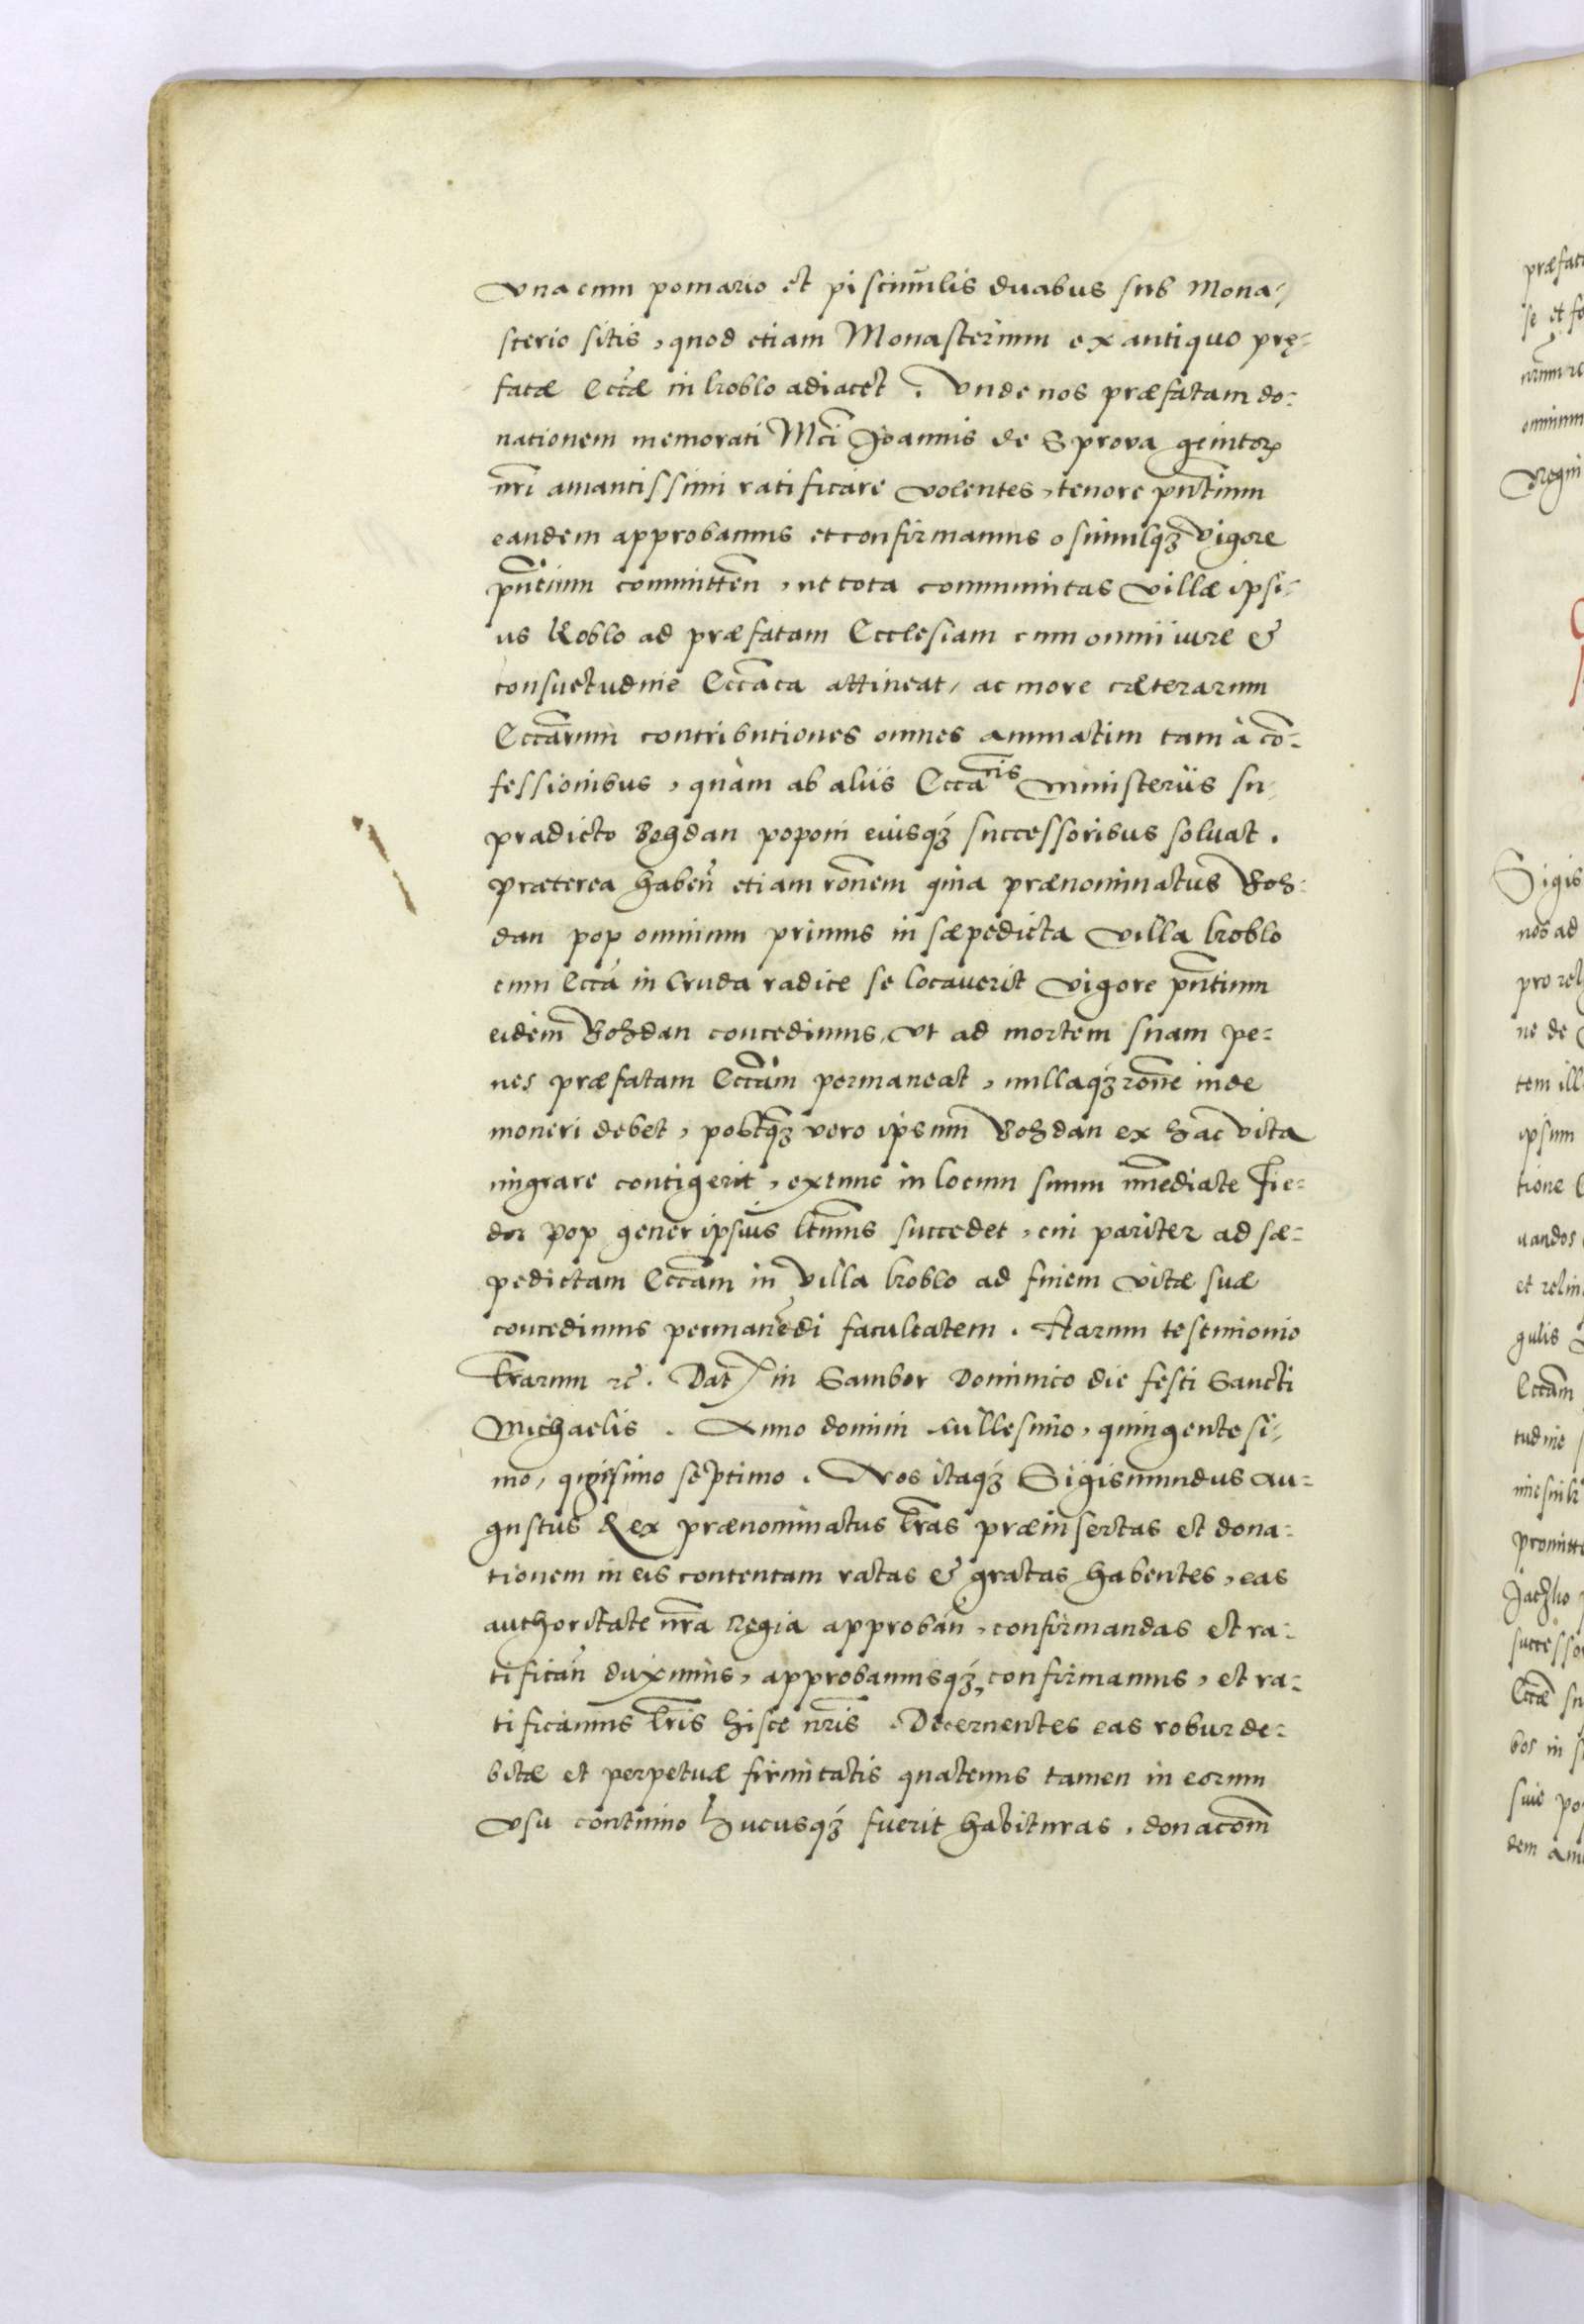 vna cum pomario et piscinulis duabus sub Mona-
sterio sitis, quod etiam Monasterium ex antiquo prę-
fatæ Eccæ in kroblo adiacet. Vnde nos præfatam do-
nationem memorati Mci Joannis de Sprova genitoris
nri amantissimi ratificare volentes, tenore pntium
eandem approbamus et confirmamus, simulqz vigore
pntium committen, ut tota communitas villæ ipsi-
us Kroblo ad præfatam Ecclesiam cum omni iure &
consuetudine Eccaca attineat, ac more cæterarum
Eccarum contributiones omnes annuatim tam à con-
fessionibus, quàm ab aliis Eccaris ministeriis su-
pradicto Bohdan poponi eiusqz successoribus soluat.
præterea haben etiam ronem quia prænominatus Boh-
dan pop omnium primus in sæpedicta villa kroblo
cum Ecca in cruda radice se locauerit vigore pntium
eidem Bohdan concedimus, vt ad mortem suam pe-
nes præfatam Eccam permaneat, nullaqz rone inde
moneri debet, postqz vero ipsum Bohdan ex hac vita
migrare contigerit, extunc in locum suum imediate Fie-
dor pop gener ipsius ltimus succedet, cui pariter ad sæ-
pedictam Eccam in villa kroblo ad finem vitæ suæ
concedimus permanedi facultatem. Harum testimonio
lrarum rc. Dat in Sambor Dominico die festi Sancti
Michaelis. Anno domini Millesimo, quingentesi-
mo, qugissimo septimo. Nos itaqz Sigismundus Au-
gustus Rex prænominatus lras præinsertas et dona-
tionem in eis contentam ratas & gratas habentes, eas
authoritate nra Regia approban, confirmandas et ra-
tifican duximus, approbamusqz, confirmamus, et ra-
tificamus lris hisce nris. Decernentes eas robur de-
bitæ et perpetuæ firmitatis quatenus tamen in eorum
vsu continuo hucusqz fuerit habituras. donacom